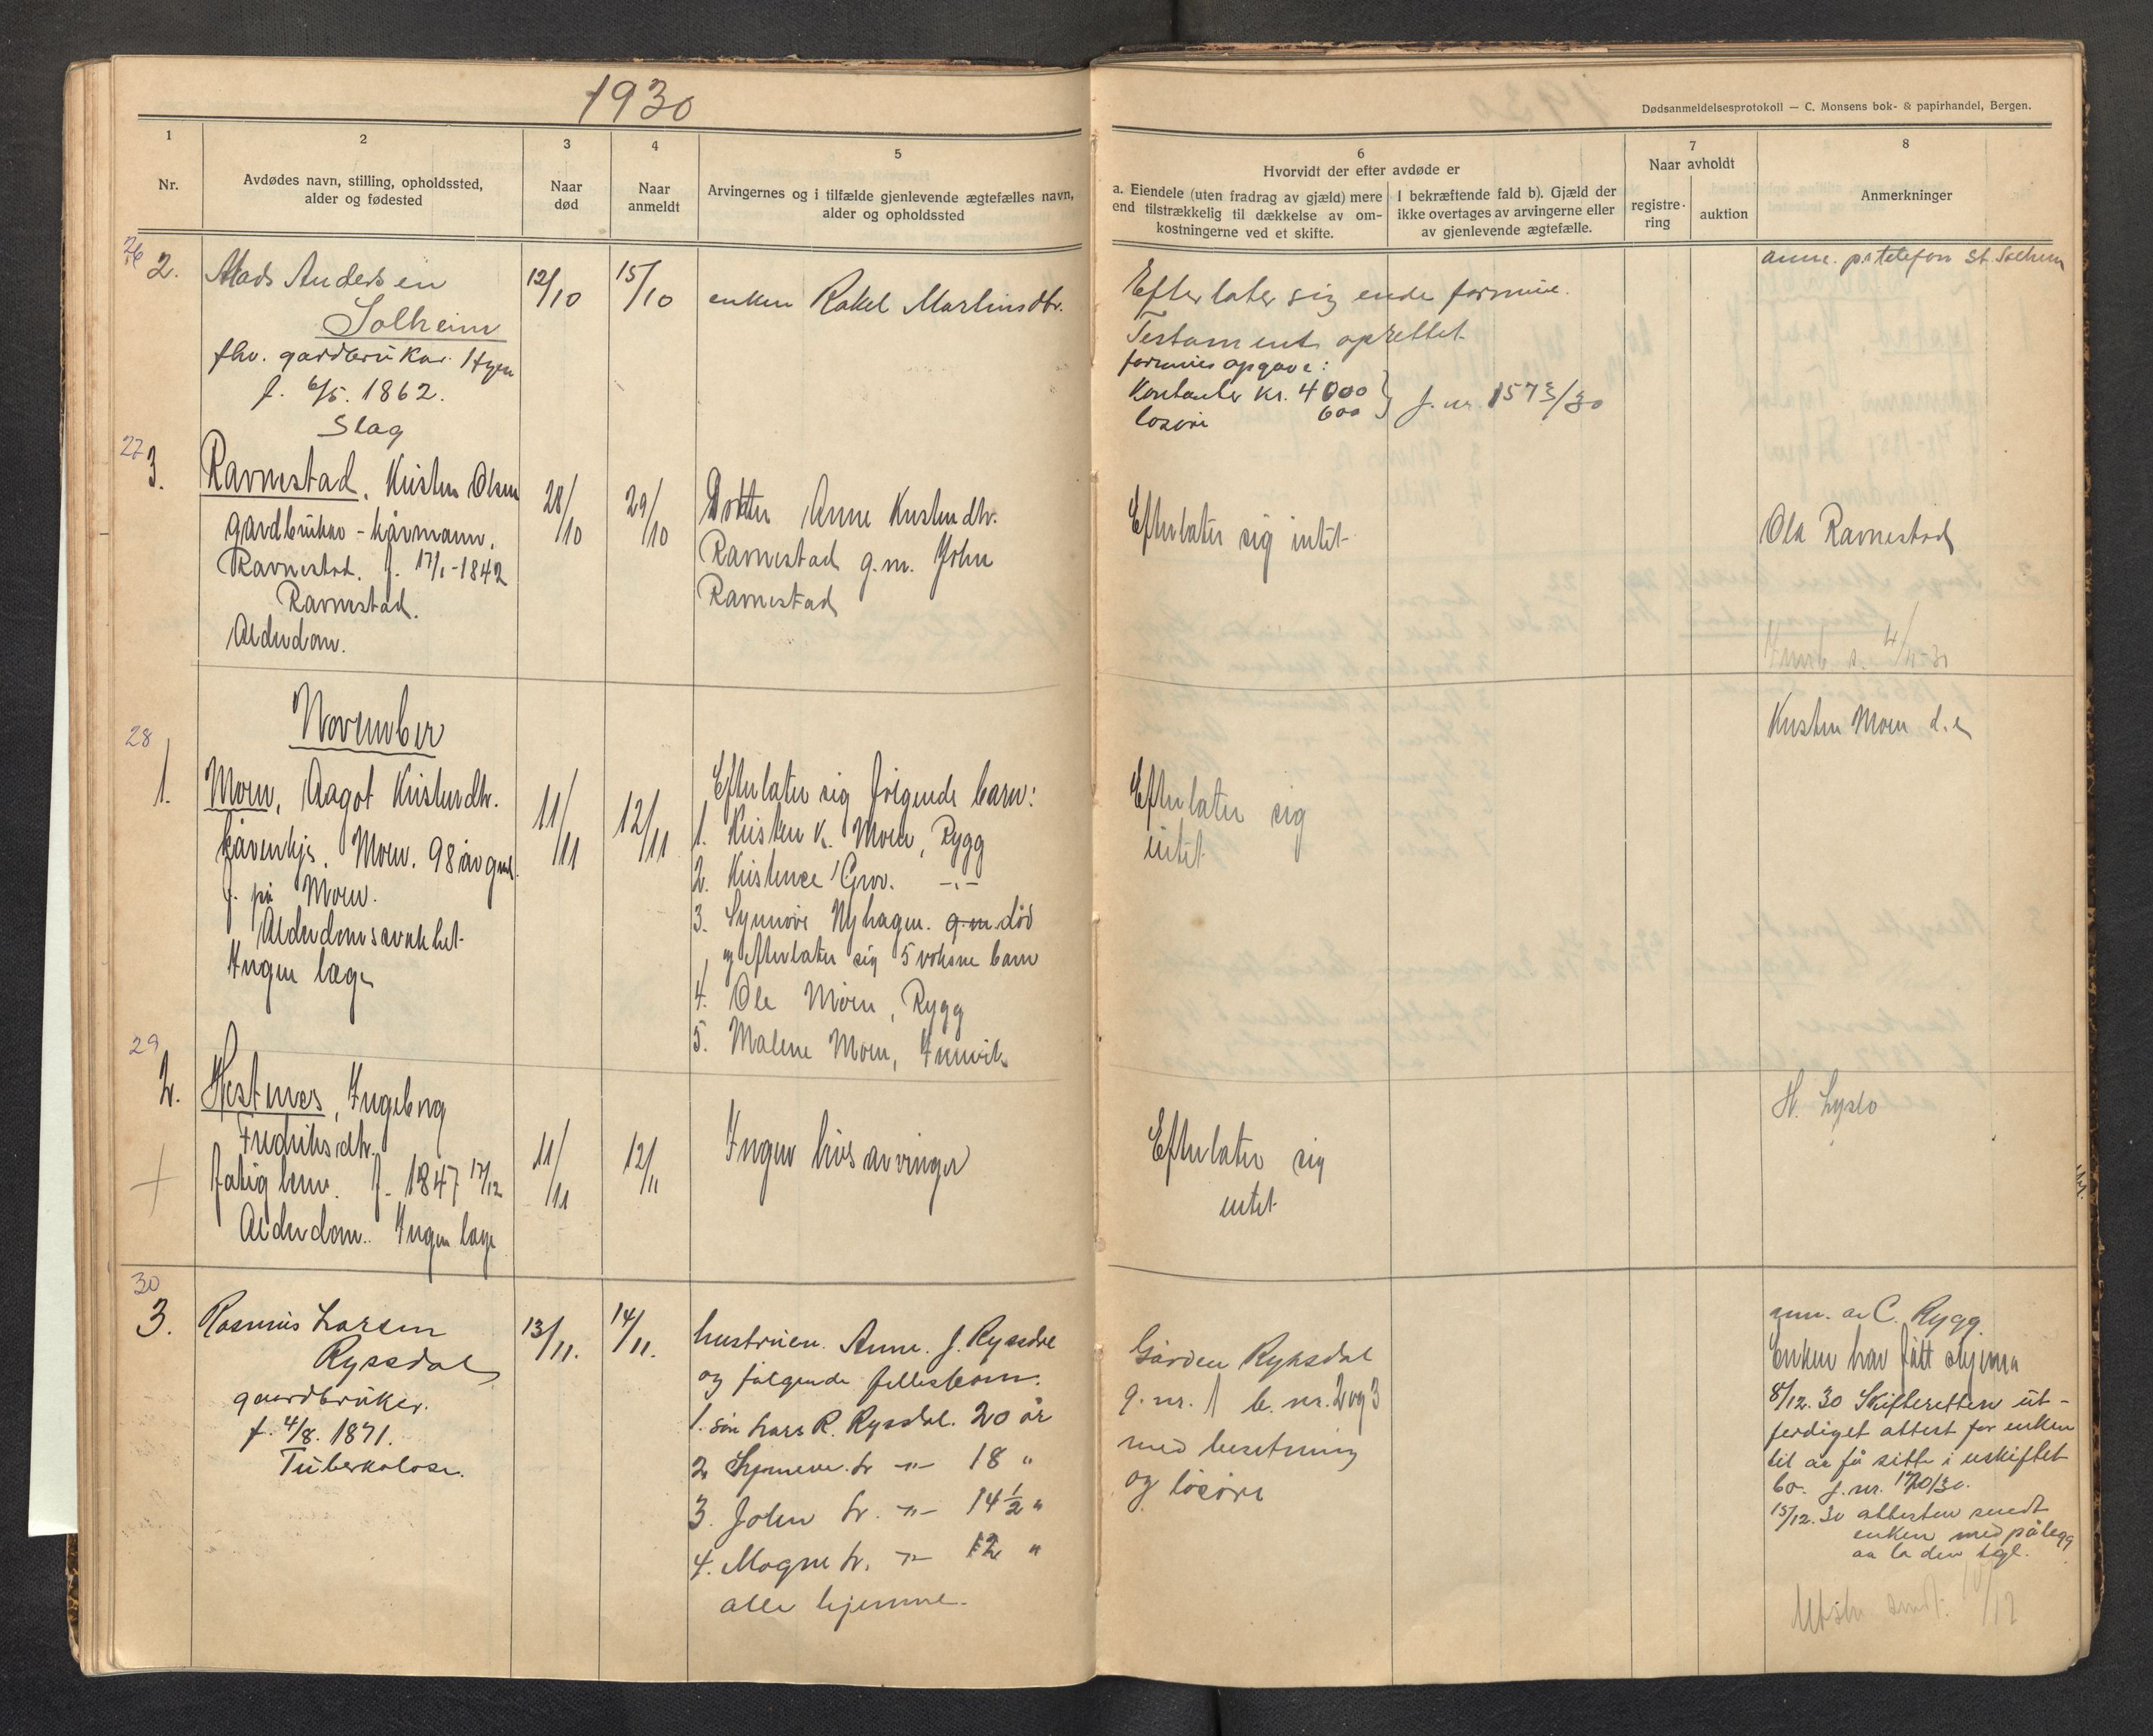 1930
Dødsanmeldelsesprotokoll — C. Monsens bok- & papirhandel, Bergen.
1
Nr.
2
Avdødes navn, stilling, opholdssted,
alder og fødested
3
Naar
død
4
Naar
anmeldt
5
Arvingernes og i tilfælde gjenlevende ægtefælles navn,
alder og opholdssted
6
Hvorvidt der efter avdøde er
a. Eiendele (uten fradrag av gjæld) mere
end tilstrækkelig til dækkelse av om-
kostningerne ved et skifte.
I bekræftende fald b). Gjæld der
ikke overtages av arvingerne eller
av gjenlevende ægtefælle.
7
Naar avholdt
registre-
ring
auktion
8
Anmerkninger
26
2.
Mads Andersen
Solheim
fhv. gardbruker. Hyen
f. 6/5. 1862.
Slag
12/10
15/10
enken Rakel Martinsdtr.
Efterlater sig ende formue.
Testament oprettet
formues opgave:
Kontanter kr. 4000
løsøre 600
j. nr. 1573/30
anm. pr telefon St. Solheim
27
3.
Ravnestad, Kristen Olsen
gardbruker - kårmann,
Ravnestad. f. 17/1-1842
Ravnestad.
Alderdom.
28/10
29/10
Dotter Anne Kristendtr.
Ravnestad g.m. John
Ravnestad
Efterlater sig intet
Ola Ravnestad
4/11-30
November
28
1.
Moen, Aagot Kristendtr.
kårenkje. Moen. 98 år gml.
f. på Moen.
Alderdomssvakhet
Ingen læge
11/11
12/11
Efterlater sig følgende barn:
1. Kristen K. Moen, Rygg
2. Kristence Grov. -"-
3. Synnøve Nyhagen. g.m. død
og efterlater sig 5 voksne barn
4. Ole Moen, Rygg
5. Malene Moen, Innvik
Efterlater sig
intet
Kristen Moen d.e
29
2.
Hestnes, Ingeborg
Fredriksdtr.
fatiglem. f. 1847 17/12
Alderdom. Ingen læge
11/11
12/11
Ingen livsarvinger
Efterlater sig
intet
H. Lyslo
30
3.
Rasmus Larsen
Ryssdal
gaardbruker.
f. 4/8. 1871.
Tuberkolose.
13/11.
14/11.
hustruen. Anne. J. Ryssdal
og følgende fellesbarn.
1. søn Lars R. Ryssdal. 20 år
2. Synneve. Fr -"- 18 "
3. John Fr. -"- 14½ "
4. Mogne Fr. -"- 12 "
alle hjemme.
Gården Ryssdal
g. nr. 1 b. nr. 2 og 3
med besetning
og løsøre
anm. av C. Rygg.
Enken har fått skjema
8/12.30 Skifteretten ut-
ferdiget attest for enken
til aa få sitte i uskiftet
bo. j. nr. 1720/30.
15/12.30 attesten sendt
enken med pålegg
aa la den tgl.